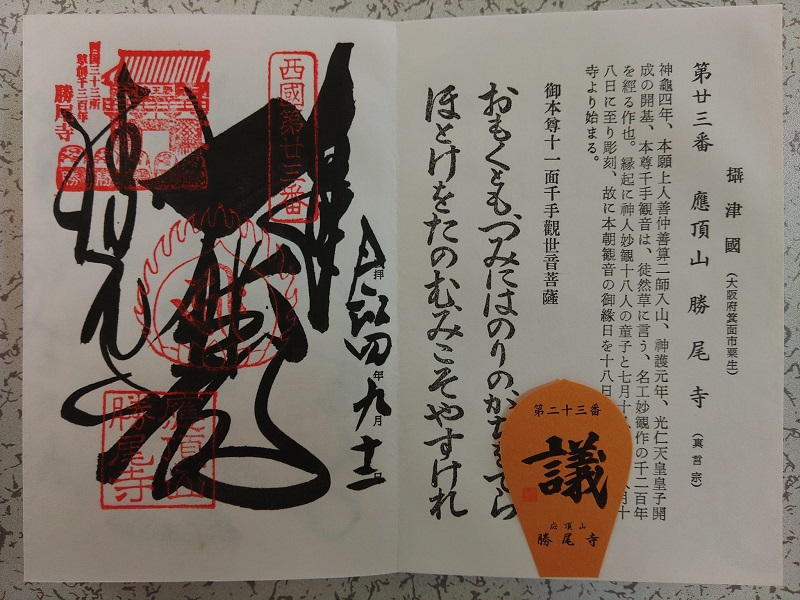 攝津國(大阪府箕面市粟生)
第廿三番 應頂山 勝尾寺(眞言宗)
神龜四年、本願上人善仲善算二師入山、神護元年、光仁天皇皇子開
成の開基、本尊千手観音は、徒然草に言う、名工妙観作の千二百年
を經る作也。縁起に神人妙観十八人の童子と七月十
月十
八日に至り彫刻、故に本朝観音の御緣日を十八日
寺より始まる。
御本尊十一面千手觀世音菩薩
おもくともつみにはのりのかちをてら
ほとけをたのむみこそやすけれ
第二十三番
議
応頂山
勝尾寺
奉拝
年九月十二日
西國第廿三番
大悲殿
勝尾寺
應頂山
勝尾寺
西国三十三所
草創千三百年
勝尾寺
勝